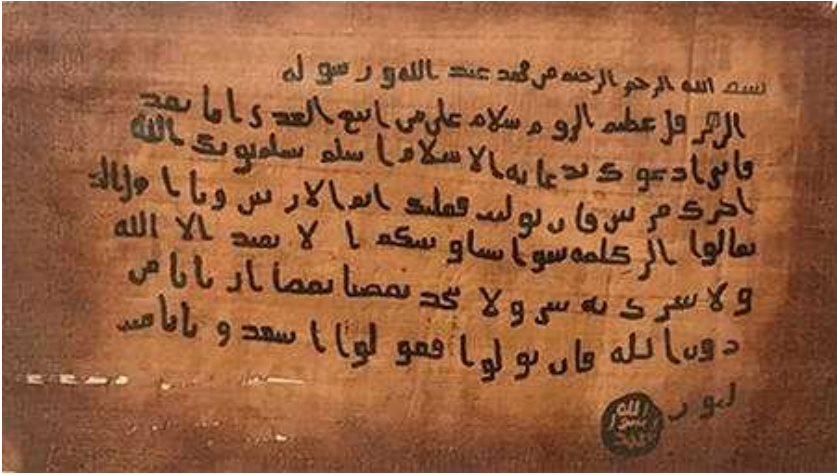 بسم الله الرحمن الرحيم من محمد عبد الله ورسوله
الى هرقل عظيم الروم سلام على من اتبع الهدى اما بعد
فاني ادعوك بدعاية الاسلام اسلم تسلم يوتك الله
اجرك مرتين فان توليت فعليك اثم الاريسين ويا اهل
تعالوا الى كلمة سوا بيننا وبينكم الا نعبد الا الله
ولا نشرك به شيا ولا يتخذ بعضنا بعضا اربابا من
دون الله فان تولوا فقولوا اشهدوا بانا مس
لمون
الله
رسول
محمد